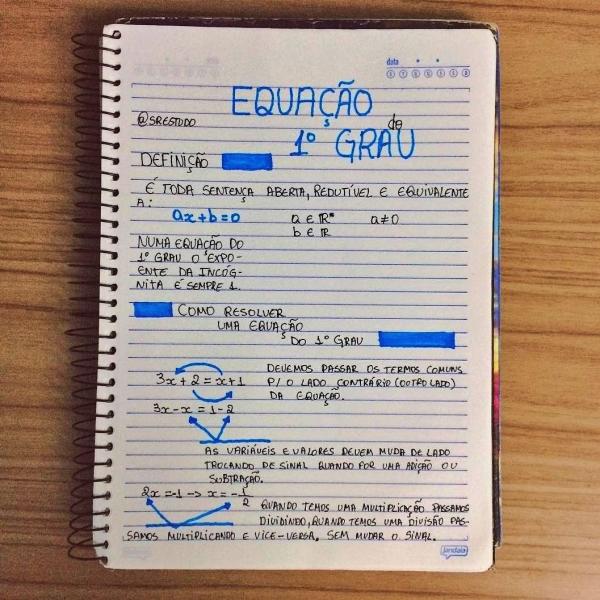 data
S T Q Q S S D
EQUAÇÃO
@SRESTUDO
do
1º GRAU
DEFINIÇÃO
É TODA SENTENÇA ABERTA, REDUTÍVEL E EQUIVALENTE
A:
ax+b=0 a ∈ ℝ* a≠0
b ∈ ℝ
NUMA EQUAÇÃO DO
1º GRAU O EXPO-
ENTE DA INCÓG-
NITA É SEMPRE 1.
COMO RESOLVER
UMA EQUAÇÃO
DO 1º GRAU
3x + 2 = x+1
3x-x = 1-2
DEVEMOS PASSAR OS TERMOS COMUNS
P/ O LADO CONTRÁRIO (OUTRO LADO)
DA EQUAÇÃO.
AS VARIÁVEIS E VALORES DEVEM MUDA DE LADO
TROCANDO DE SINAL QUANDO FOR UMA ADIÇÃO OU
SUBTRAÇÃO.
2x =-1 -> x = -1/2
QUANDO TEMOS UMA MULTIPLICAÇÃO PASSAMOS
DIVIDINDO, QUANDO TEMOS UMA DIVISÃO PAS-
SAMOS MULTIPLICANDO E VICE-VERSA, SEM MUDAR O SINAL.
jandaia